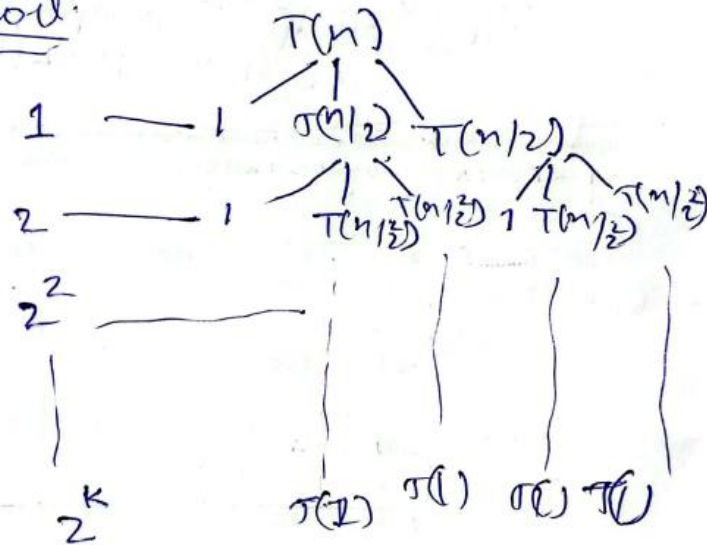 T(n)
1 1 T(n/2) T(n/2)
2 1 T(n/2²) T(n/2²) 1 T(n/2²) T(n/2²)
2²
2^k T(1) T(1) T(1) T(1)